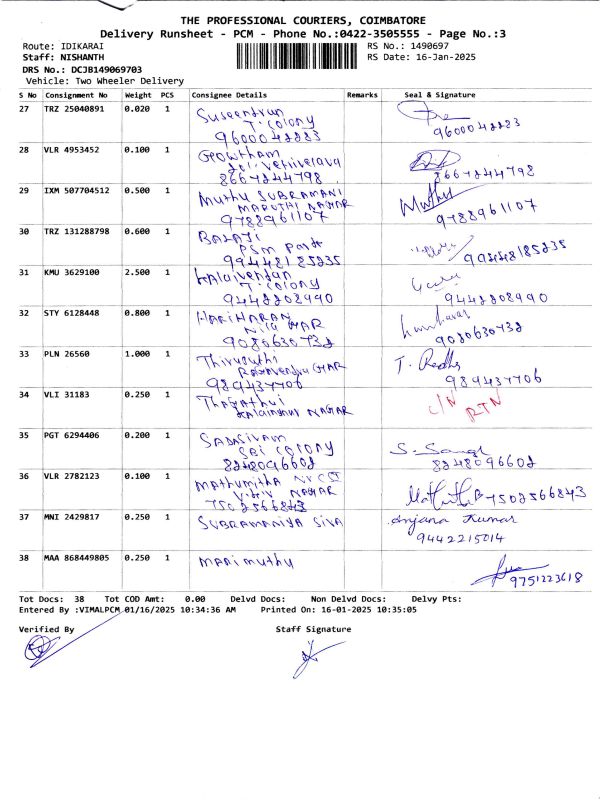 THE PROFESSIONAL COURIERS, COIMBATORE
Delivery Runsheet - PCM - Phone No.:0422-3505555 - Page No.:3
Route: IDIKARAI RS No.: 1490697
Staff: NISHANTH RS Date: 16-Jan-2025
DRS No.: DCJB149069703
Vehicle: Two Wheeler Delivery
S No Consignment No Weight PCS Consignee Details Remarks Seal & Signature
27 TRZ 25040891 0.020 1 Suseentran
T. Colony
9600048883 9600048883
28 VLR 4953452 0.100 1 Gowtham
Sri. Vetrivelava
8667844798 8667844798
29 IXM 507704512 0.500 1 Muthu SUBRAMANI Muthu
MARUTHI NAGAR
9788961107 9788961107
30 TRZ 131288798 0.600 1 BALAJI
PSM
99448185835 99448185835
31 KMU 3629100 2.500 1 Kalaivendan
T. Colony
9448808990 9448808990
32 STY 6128448 0.800 1 HARIHARAN
NAGAR
9080630738 9080630738
33 PLN 26560 1.000 1
989437706 989437706
34 VLI 31183 0.250 1 C/N
NAGAR RTN
35 PGT 6294406 0.200 1 SADASIVAM
SRI COLONY
8248096608 8248096608
36 VLR 2782123 0.100 1 MATHUMITHA
NAGAR
7502566843 7502566843
37 MNI 2429817 0.250 1 SUBRAMANIYA SIVA Anjana Kumar
9442215014
38 MAA 868449805 0.250 1 MARIMUTHU
9751223618
Tot Docs: 38 Tot COD Amt: 0.00 Delvd Docs: Non Delvd Docs: Delvy Pts:
Entered By :VIMALPCM 01/16/2025 10:34:36 AM Printed On: 16-01-2025 10:35:05
Verified By Staff Signature